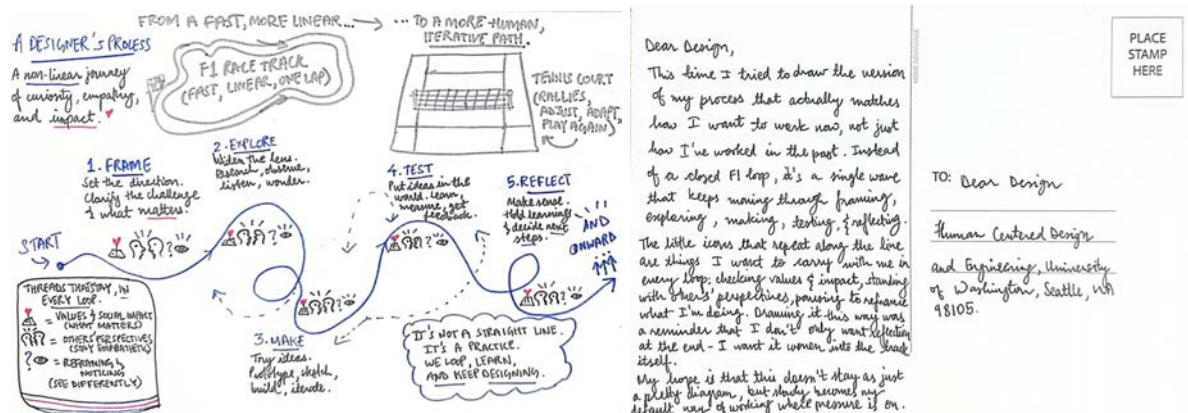 FROM A FAST, MORE LINEAR...
... TO A MORE HUMAN,
ITERATIVE PATH.
A DESIGNER'S PROCESS
A non-linear journey
of curiosity, empathy,
and impact.
F1 RACE TRACK
(FAST, LINEAR, ONE LAP)
TENNIS COURT
(RALLIES,
ADJUST, ADAPT,
PLAY AGAIN)
1. FRAME
Set the direction.
Clarify the challenge
& what matters.
2. EXPLORE
Widen the lens.
Research, observe,
listen, wonder.
4. TEST
Put ideas in the
world. Learn,
measure, get
feedback.
5. REFLECT
Make sense.
Hold learnings
& decide next
steps.
AND
ONWARD
START
THREADS THAT STAY, IN
EVERY LOOP.
= VALUES & SOCIAL IMPACT
(WHAT MATTERS)
= OTHERS' PERSPECTIVES
(STAY EMPATHETIC)
? = REFRAMING &
NOTICING
(SEE DIFFERENTLY)
3. MAKE
Try ideas.
Prototype, sketch,
build, iterate.
IT'S NOT A STRAIGHT LINE.
IT'S A PRACTICE.
WE LOOP, LEARN,
AND KEEP DESIGNING.
Dear Design,
This time I tried to draw the version
of my process that actually matches
how I want to work now, not just
how I've worked in the past. Instead
of a closed F1 loop, it's a single wave
that keeps moving through framing,
exploring, making, testing, & reflecting.
The little icons that repeat along the line
are things I want to carry with me in
every loop: checking values & impact, standing
with others' perspectives, pausing to reframe
what I'm doing. Drawing it this way was
a reminder that I don't only want reflection
at the end - I want it woven into the track
itself.
My hope is that this doesn't stay as just
a pretty diagram, but slowly becomes my
default way of working when pressure is on.
PLACE
STAMP
HERE
TO: Dear Design
Human Centered Design
and Engineering, University
of Washington, Seattle, WA
98105.